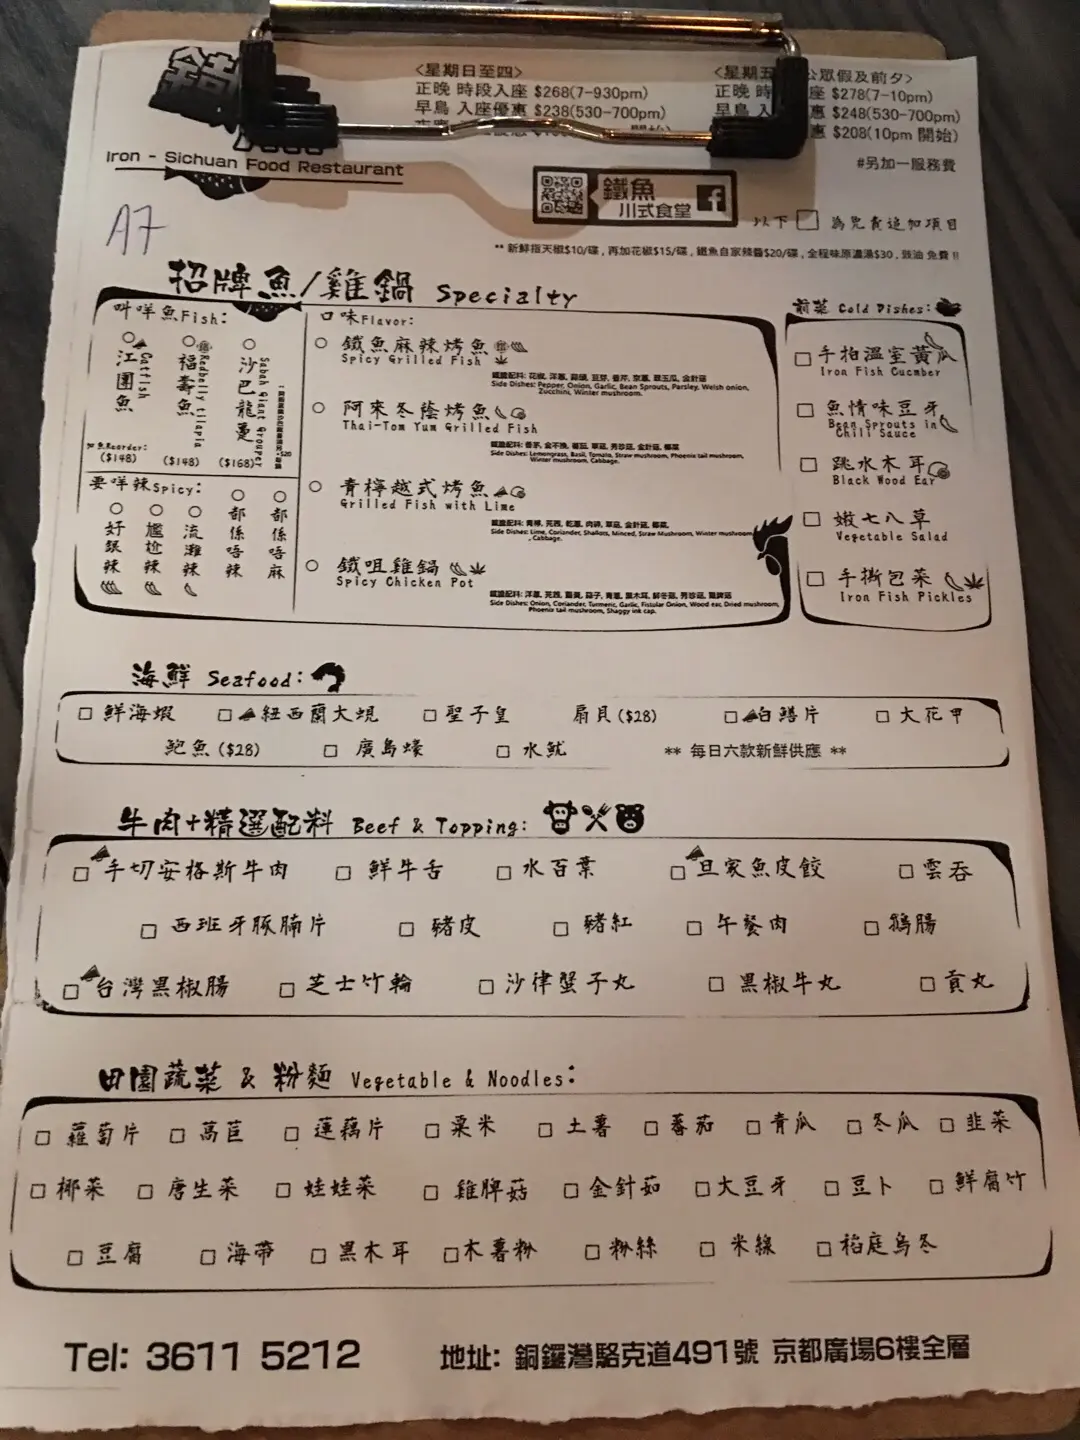 <星期日至四>
正晚 時段入座 $268(7-930pm)
早鳥 入座優惠 $238(530-700pm)
<星期五 公眾假及前夕>
正晚 時 座 $278(7-10pm)
早鳥 入 惠 $248(530-700pm)
惠 $208(10pm 開始)
#另加一服務費
Iron - Sichuan Food Restaurant
鐵魚
川式食堂
f
A7
以下 □ 為免費追加項目
** 新鮮指天椒$10/碟 , 再加花椒$15/碟 , 鐵魚自家辣醬$20/碟 , 全程味原濃湯$30 , 豉油 免費 !!
招牌魚/雞鍋 Specialty
叫咩魚Fish:
江團魚 Catfish
福壽魚 Redbelly tilapia
沙巴龍躉 Sabah Giant Grouper
加魚Reorder:
($148)
($148)
($168)
要咩辣Spicy:
好銀辣
尷尬辣
流灘辣
都係唔辣
都係唔麻
口味Flavor:
鐵魚麻辣烤魚
Spicy Grilled Fish
鐵膽配料: 花椒, 洋蔥, 蒜頭, 豆芽, 香芹, 京蔥, 翠玉瓜, 金針菇
Side Dishes: Pepper, Onion, Garlic, Bean Sprouts, Parsley, Welsh onion,
Zucchini, Winter mushroom.
阿來冬蔭烤魚
Thai-Tom Yum Grilled Fish
鐵膽配料: 香茅, 金不換, 蕃茄, 草菇, 秀珍菇, 金針菇, 椰菜
Side Dishes: Lemongrass, Basil, Tomato, Straw mushroom, Phoenix tail mushroom,
Winter mushroom, Cabbage.
青檸越式烤魚
Grilled Fish with Lime
鐵膽配料: 青檸, 芫茜, 乾蔥, 肉碎, 草菇, 金針菇, 椰菜
Side Dishes: Lime, Coriander, Shallots, Minced, Straw Mushroom, Winter mushroom
, Cabbage.
鐵咀雞鍋
Spicy Chicken Pot
Side Dishes: Onion, Coriander, Turmeric, Garlic, Fistular Onion, Wood ear, Dried mushroom,
Phoenix tail mushroom, Shaggy ink cap.
前菜 Cold Dishes:
□ 手拍溫室黃瓜
Iron Fish Cucmber
□ 魚情味豆牙
Bean Sprouts in
Chili Sauce
□ 跳水木耳
Black Wood Ear
□ 嫩七八草
Vegetable Salad
□ 手撕包菜
Iron Fish Pickles
海鮮 Seafood:
□ 鮮海蝦 □ 紐西蘭大蜆 □ 聖子皇 扇貝($28) □ 白鱔片 □ 大花甲
鮑魚($28) □ 廣島蠔 □ 水魷 ** 每日六款新鮮供應 **
牛肉+精選配料 Beef & Topping:
□ 手切安格斯牛肉 □ 鮮牛舌 □ 水百葉 □ 旦家魚皮餃 □ 雲吞
□ 西班牙豚腩片 □ 豬皮 □ 豬紅 □ 午餐肉 □ 鵝腸
□ 台灣黑椒腸 □ 芝士竹輪 □ 沙律蟹子丸 □ 黑椒牛丸 □ 貢丸
田園蔬菜 & 粉麵 Vegetable & Noodles:
□ 蘿蔔片 □ 萵苣 □ 蓮藕片 □ 粟米 □ 土薯 □ 蕃茄 □ 青瓜 □ 冬瓜 □ 韭菜
□ 椰菜 □ 唐生菜 □ 娃娃菜 □ 雞脾菇 □ 金針茹 □ 大豆牙 □ 豆卜 □ 鮮腐竹
□ 豆腐 □ 海帶 □ 黑木耳 □ 木薯粉 □ 粉絲 □ 米線 □ 稻庭烏冬
Tel: 3611 5212 地址: 銅鑼灣駱克道491號 京都廣場6樓全層